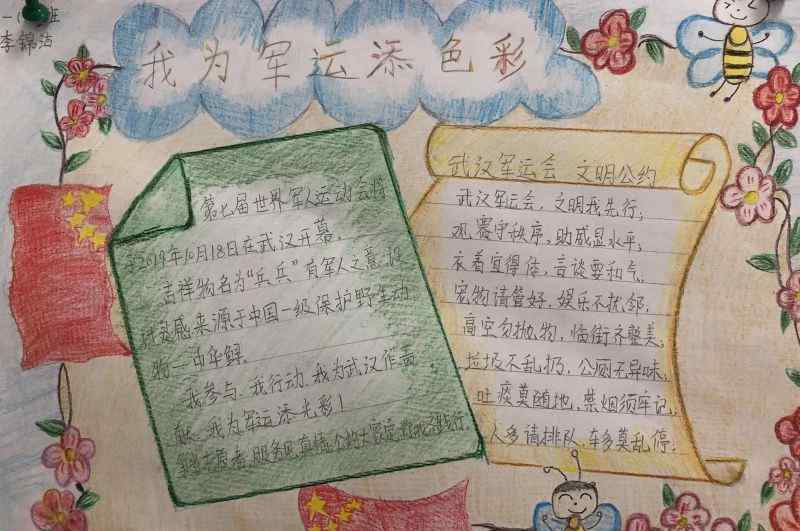 李锦
我为军运添色彩
第七届世界军人运动会将
2019年10月18日在武汉开幕,
吉祥物名为“兵兵”有军人之意,设
计灵感来源于中国一级保护野生动
物—中华鲟.
我参与、我行动、我为武汉作贡
献、我为军运添光彩!
武汉军运会 文明公约
武汉军运会,文明我先行,
观赛守秩序,助威显水平,
衣着宜得体,言谈要和气,
宠物请管好,娱乐不扰邻,
高空勿抛物,临街齐整美,
垃圾不乱扔,公厕不异味,
吐痰莫随地,禁烟须牢记,
人多请排队,车多莫乱停.